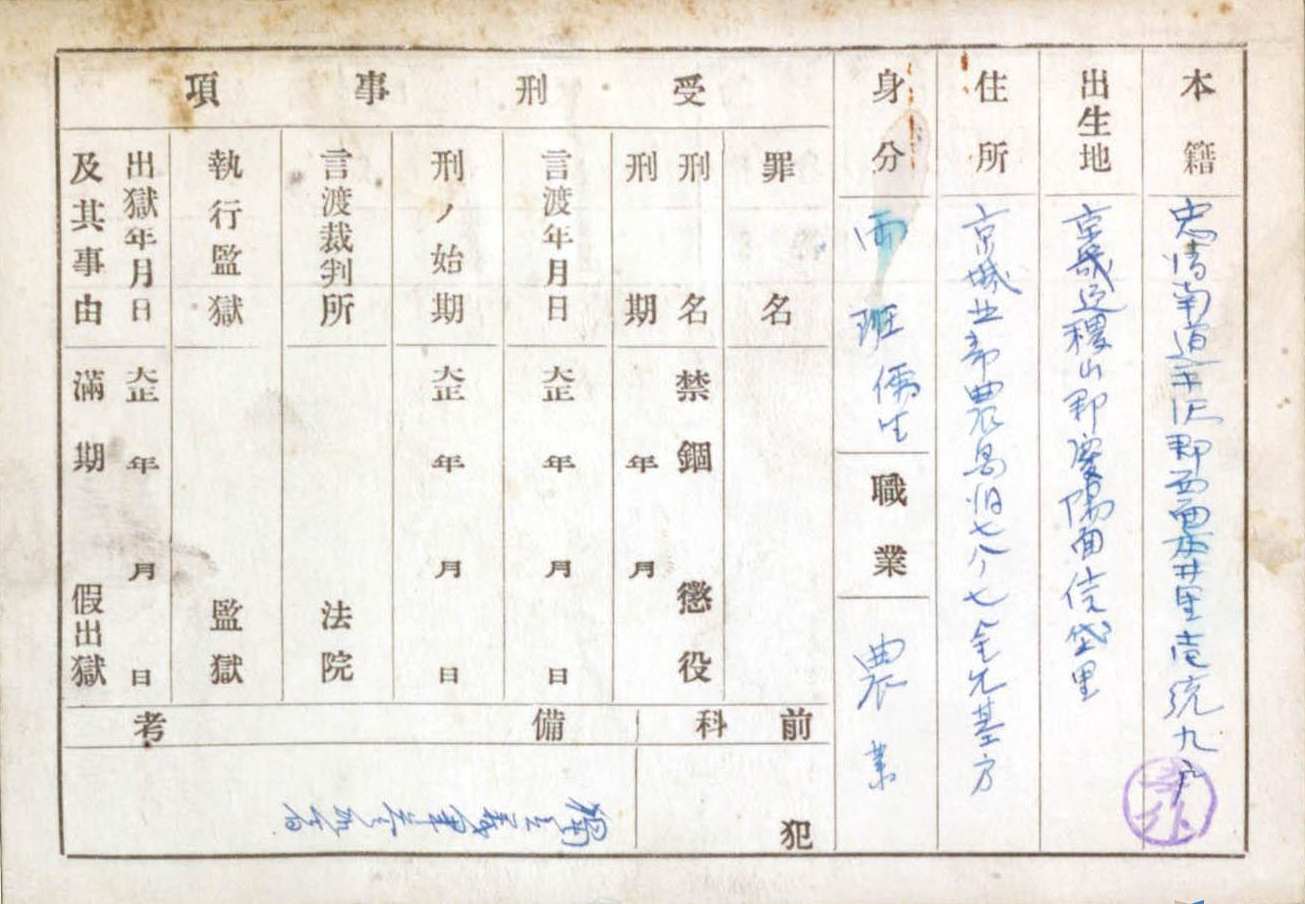 本籍
忠清南道平沢郡西面
井里壱統九戸
出生地
京畿道稷山郡慶陽面信垈里
住所
京城
七八ノ七金允基方
身分
両班儒生
職業
農業
受刑事項
罪名
刑名
禁錮 懲役
刑期
年 月
言渡年月日
大正 年 月 日
刑ノ始期
大正 年 月 日
言渡裁判所
法院
執行監獄
監獄
出獄年月日
及其事由
大正 年 月 日
滿期 假出獄
前科
犯
備考
獨立義軍